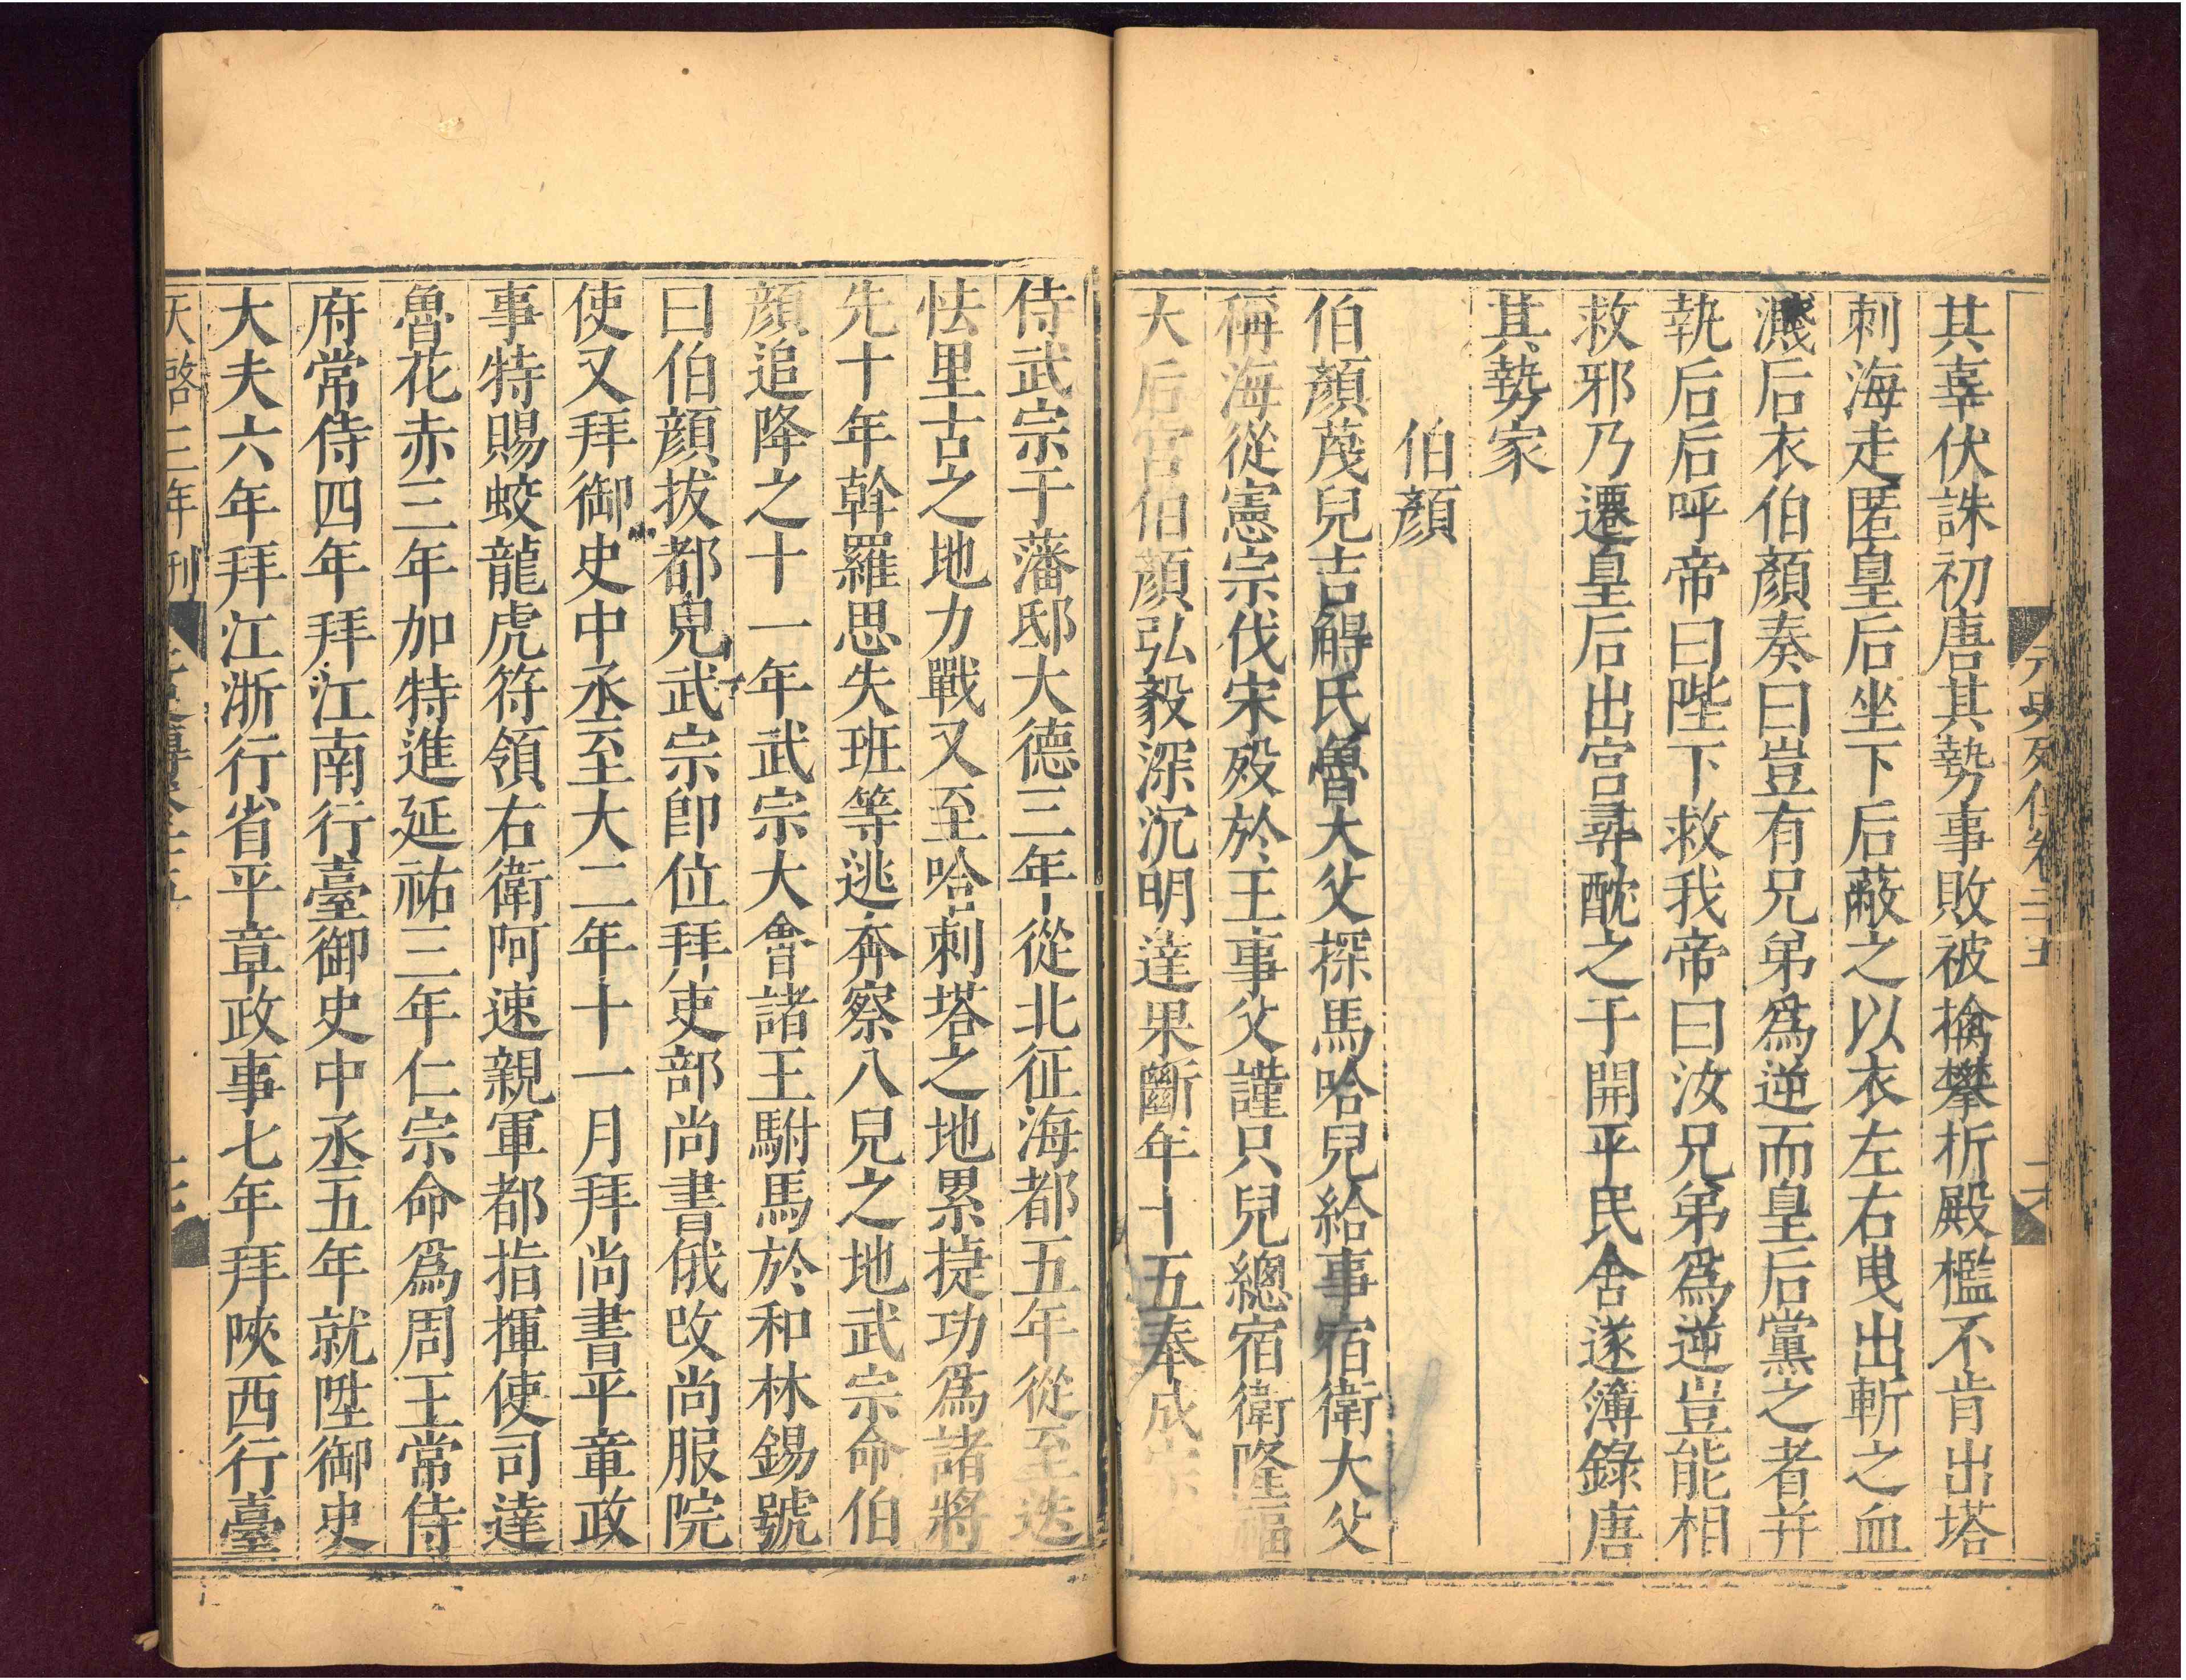 元史列傳卷二十五
其辜伏誅初唐其勢事敗被擒攀折殿檻不肯出塔
刺海走匿皇后坐下后蔽之以衣左右曳出斬之血
濺后衣伯顏奏曰豈有兄弟爲逆而皇后黨之者并
執后后呼帝曰陛下救我帝曰汝兄弟爲逆豈能相
救邪乃遷皇后出宫尋酖之于開平民舍遂簿錄唐
其勢家
伯顏
伯顏蔑兒吉䚟氏曾大父探馬哈兒給事宿衛大父
稱海從憲宗伐宋歿於王事父謹只兒總宿衛隆福
大后宫伯顏弘毅深沉明達果斷年十五奉成宗
侍武宗于藩邸大德三年從北征海都五年從至迭
怯里古之地力戰又至哈刺塔之地累㨗功爲諸將
先十年斡羅思失班等逃奔察八兒之地武宗命伯
顏追降之十一年武宗大會諸王駙馬於和林錫號
曰伯顏拔都兒武宗卽位拜吏部尚書俄改尚服院
使又拜御史中丞至大二年十一月拜尚書平章政
事特賜蛟龍虎符領右衛阿速親軍都指揮使司達
魯花赤三年加特進延祐三年仁宗命爲周王常侍
府常侍四年拜江南行臺御史中丞五年就陞御史
大夫六年拜江浙行省平章政事七年拜陝西行臺
天啓三年刊